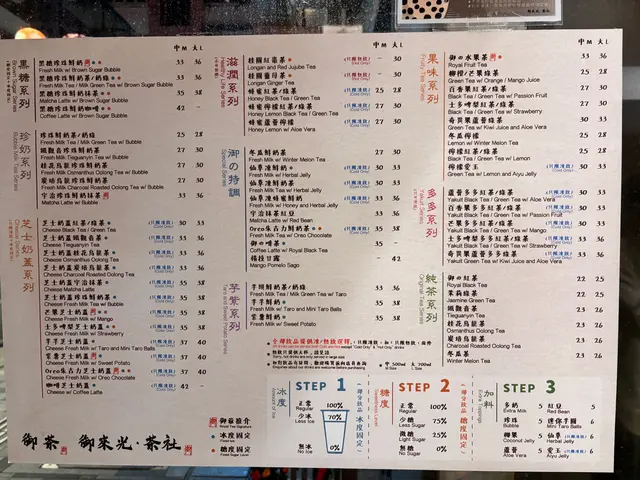 中M 大L
黑糖系列
黑糖珍珠鮮奶 33 36
Fresh Milk w/ Brown Sugar Bubble
黑糖珍珠鮮奶茶/奶綠 33 36
Fresh Milk Tea / Milk Green Tea w/ Brown Sugar Bubble
黑糖珍珠鮮奶抹茶 35 38
Matcha Latte w/ Brown Sugar Bubble
黑糖珍珠鮮奶咖啡 42 -
Coffee Latte w/ Brown Sugar Bubble
珍奶系列
珍珠鮮奶茶/奶綠 25 28
Fresh Milk Tea w/ Bubble
鐵觀音珍珠鮮奶茶 27 30
Fresh Milk Tieguanyin Tea w/ Bubble
桂花烏龍珍珠鮮奶茶 27 30
Fresh Milk Osmanthus Oolong Tea w/ Bubble
炭培烏龍珍珠鮮奶茶 27 30
Fresh Milk Charcoal Roasted Oolong Tea w/ Bubble
宇治珍珠鮮奶抹茶 33 36
Matcha Latte w/ Bubble
芝士奶蓋系列
芝士奶蓋紅茶/綠茶 30 33
Cheese Black Tea / Green Tea
芝士奶蓋鐵觀音茶 33 36
Cheese Tieguanyin Tea
芝士奶蓋桂花烏龍茶 33 36
Cheese Osmanthus Oolong Tea
芝士奶蓋炭培烏龍茶 33 36
Cheese Charcoal Roasted Oolong Tea
芝士奶蓋宇治抹茶 33 36
Cheese Matcha Latte
芝士奶蓋珍珠鮮奶茶 33 36
Cheese Fresh Milk Tea w/ Bubble
芒果芝士奶蓋 33 36
Cheese Fresh Milk w/ Mango
士多啤梨芝士奶蓋 33 36
Cheese Fresh Milk w/ Strawberry
芋芋芝士奶蓋 37 40
Cheese Fresh Milk w/ Taro and Mini Taro Balls
紫薯芝士奶蓋 37 40
Cheese Fresh Milk w/ Sweet Potato
Oreo朱古力芝士奶蓋 37 40
Cheese Fresh Milk w/ Oreo Chocolate
咖啡芝士奶蓋 42 -
Cheese w/ Coffee Latte
中M 大L
滋潤系列
Healthy Life Series
桂圓紅棗茶 - 30
Longan and Red Jujube Tea
桂圓薑母茶 - 30
Longan Ginger Tea
蜂蜜紅茶/綠茶 25 28
Honey Black Tea / Green Tea
蜂蜜檸檬紅茶/綠茶 27 30
Honey Lemon Black Tea / Green Tea
蜂蜜蘆薈檸檬 27 30
Honey Lemon w/ Aloe Vera
御の特調
Special Series
冬瓜鮮奶 27 30
Fresh Milk w/ Winter Melon Tea
仙草凍鮮奶 30 33
Fresh Milk w/ Herbal Jelly
仙草凍鮮奶茶 30 33
Fresh Milk Tea w/ Herbal Jelly
仙草凍蜂蜜鮮奶 33 36
Fresh Milk w/ Honey and Herbal Jelly
宇治抹茶紅豆 33 36
Matcha Latte w/ Red Bean
Oreo朱古力鮮奶茶 35 38
Fresh Milk Tea w/ Oreo Chocolate
御の啡茶 35 -
Coffee Latte w/ Royal Black Tea
楊枝甘露 - 42
Mango Pomelo Sago
芋紫系列
芋頭鮮奶茶/奶綠 30 33
Fresh Milk Tea / Milk Green Tea w/ Taro
芋芋鮮奶 35 38
Fresh Milk w/ Taro and Mini Taro Balls
紫薯鮮奶 35 38
Fresh Milk w/ Sweet Potato
中M 大L
果味系列
Fruity Tea Series
御の水果茶 33 36
Royal Fruit Tea
柳橙/芒果綠茶 25 28
Green Tea w/ Orange / Mango Juice
百香果紅茶/綠茶 25 28
Black Tea / Green Tea w/ Passion Fruit
士多啤梨紅茶/綠茶 27 30
Black Tea / Green Tea w/ Strawberry
奇異果蘆薈綠茶 30 33
Green Tea w/ Kiwi Juice and Aloe Vera
冬瓜檸檬 25 28
Lemon w/ Winter Melon Tea
檸檬紅茶/綠茶 25 28
Black Tea / Green Tea w/ Lemon
檸檬愛玉 30 33
Green Tea w/ Lemon and Aiyu Jelly
多多系列
蘆薈多多紅茶/綠茶 30 33
Yakult Black Tea / Green Tea w/ Aloe Vera
百香果多多紅茶/綠茶 30 33
Yakult Black Tea / Green Tea w/ Passion Fruit
芒果多多紅茶/綠茶 30 33
Yakult Black Tea / Green Tea w/ Mango
士多啤梨多多紅茶/綠茶 33 36
Yakult Black Tea / Green Tea w/ Strawberry
奇異果蘆薈多多綠茶 33 36
Yakult Green Tea w/ Kiwi Juice and Aloe Vera
純茶系列
Original Tea Series
御の紅茶 22 25
Royal Black Tea
茉莉綠茶 22 25
Jasmine Green Tea
鐵觀音茶 23 26
Tieguanyin Tea
桂花烏龍茶 23 26
Osmanthus Oolong Tea
炭培烏龍茶 23 26
Charcoal Roasted Oolong Tea
冬瓜茶 23 26
Winter Melon Tea
Fairly, hot drinks are only served in large size
Enquiries about our drinks are welcome before purchasing
中 500ml
M Size
大 700ml
L Size
御茶推介
Royal Tea Signature
冰度固定
糖度固定
Fixed Sugar Level
御茶 御來光·茶社
冰度
Amount of Ice
STEP 1
正常 100%
Regular
少冰 70%
Less Ice
無冰 0%
No Ice
糖度
Sweetness Level
STEP 2
正常 100%
Regular
少糖 75%
Less Sugar
微糖 25%
Light Sugar
無糖 0%
No Sugar
加料
Extra Toppings
STEP 3
多奶 5
Extra Milk
珍珠 5
Bubble
椰果 5
Coconut Jelly
蘆薈 5
Aloe Vera
紅豆 5
Red Bean
迷你芋圓 6
Mini Taro Balls
仙草 6
Herbal Jelly
愛玉 6
Aiyu Jelly